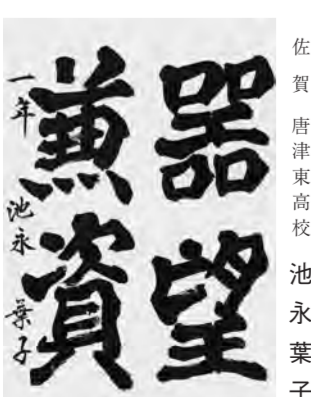 佐賀 唐津東高校 池永葉子
器望
兼資
一年 池永葉子